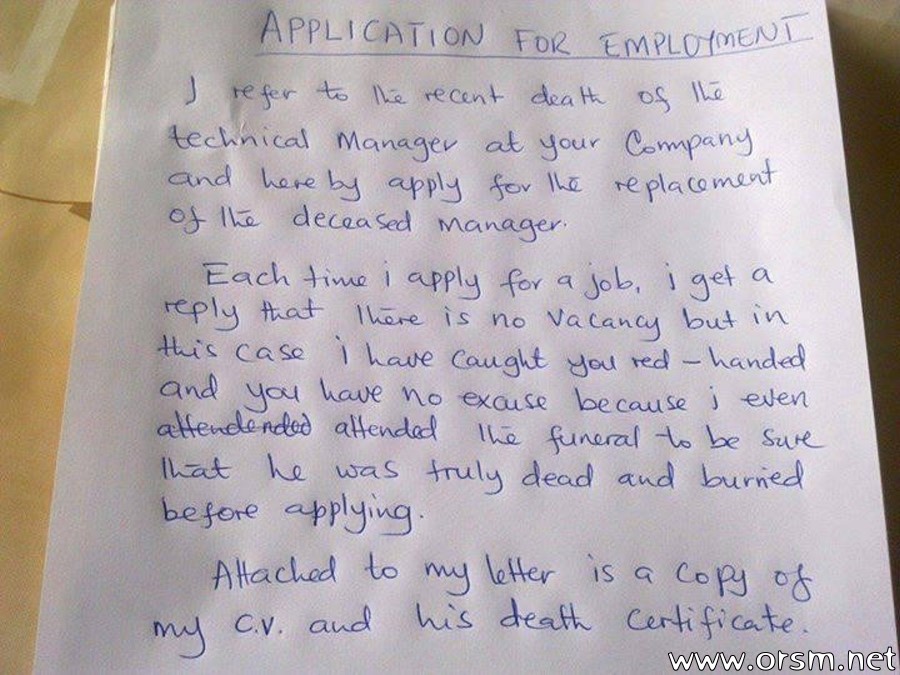 APPLICATION FOR EMPLOYMENT
I refer to the recent death of the
technical Manager at your Commpany
and here by apply for the replacement
of the deceased manager.
Each time i apply for a job, i get a
reply that there is no vacancy but in
this case i have caught you red-handed
and you have no excuse because i even
attendended attended the funeral to be sure
that he was truly dead and burried
before applying.
Attached to my letter is a copy of
my C.V. and his death certificate.
www.orsm.net